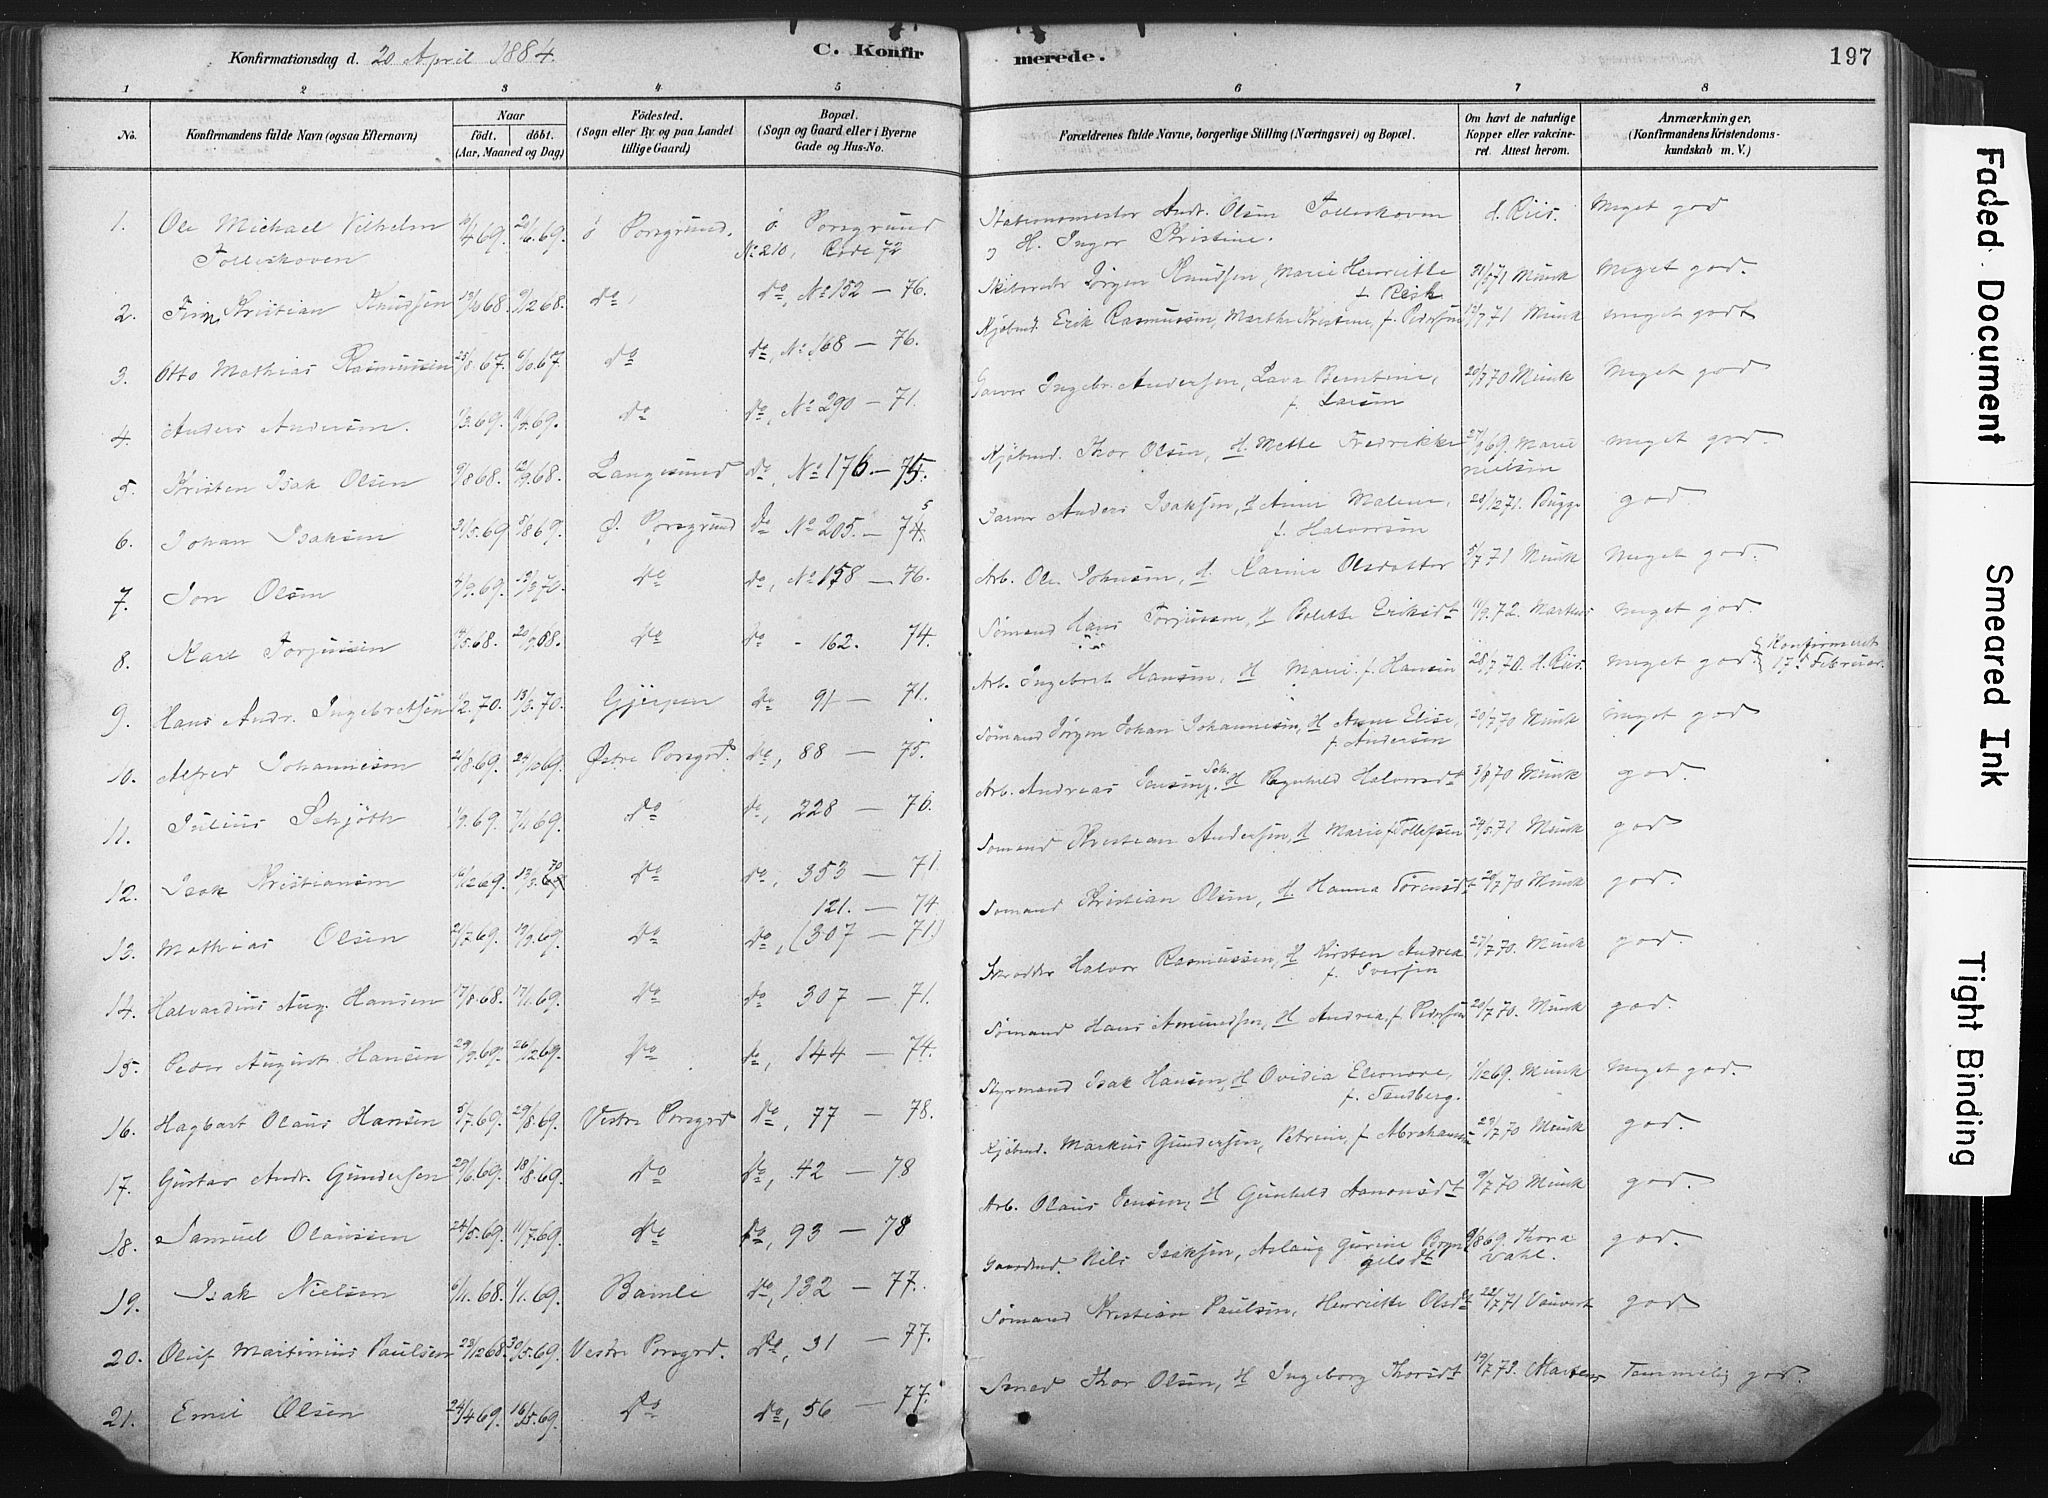 Konfirmationsdag d. 20 April 1884.
C. Konfirmerede.
197
1 2 3 4 5 6 7 8
No.
Konfirmandens fulde Navn (ogsaa Efternavn)
Naar
födt. döbt.
(Aar, Maaned og Dag)
Födested.
(Sogn eller By og paa Landet
tillige Gaard)
Bopæl.
(Sogn og Gaard eller i Byerne
Gade og Hus-No.
Forældrenes fulde Navne, borgerlige Stilling (Næringsvei) og Bopæl.
Om havt de naturlige
Kopper eller vakcineret. Attest herom.
Anmærkninger,
(Konfirmandens Kristendomskundskab m. V.)
1. Ole Michael Vilhelm 69. 69. ö Porsgrund. ö. Porsgrund Andr. Olsen H. Riis. Meget god
No 210, Rode 72 H. Inger Kristine.
2. Kristian Knudsen 68. 9/12 68. do do, No 152 — 76. Jörgen Knudsen, Marie Henriette 31/5 71 Münk Meget god.
3. Otto Mathias Rasmussen 25/8 67. 67. do do, No 168 — 76. Kjöbmd. Erik Rasmussen, Marthe Kristine, f. Pedersen 71 Münk meget godt
4. Anders Andersen. 69. 69. do do, No 290 — 71. Garver Ingebr. Andersen, 20/7 70 Münk Meget god
f. Larsen
5. Kristen Isak Olsen 9/8 68. 68. Langesund do, No 176. — 75. Kjöbmd. Thor Olsen, H. Mette Fredrikke 27/9 69. Marie
Nielsen meget god.
6. Johan Isaksen 69 5/8 69. Ö. Porsgrund do No 205. — 74. 5 Garver Anders Isaksen, H Anne Malene, 28/12 71. Bugge god.
f. Halvorsen
7. Jon Olsen 4/9. 69. 70. do do, No 158 — 76. Arb. Ole Johnsen, H. Karine Olsdatter 5/7 71 Münk Meget god.
8. Karl Torjussen 68. 68. do do - 162. 74. Sömand Hans Torjussen, H Bolette Eriksdt 11/9. 72. Martens meget god.
9. Hans Andr. Ingebretsen 1/2. 70. 13/3. 70. Gjerpen do 91 — 71. Arb. Ingebret Hansen, H Marie f. Hansen 28/7 70. H. Riis. meget god. Konfirmeret
17. Februar.
10. Alfred Johannesen 21/8. 69. 24/10 69. Östre Porsgrd. do, 88 — 75. Sömand Jörgen Johan Johannesen, H Anne Elise, 20/7 70 Münk meget god
f. Andersen
11. Julius Schjöth 1/9. 69. 69. do do, 228 — 76. Arb. Andreas Jensen Sch. H Ragnhild Halvorsdt 3/8 70 Münk god.
12. Isak Kristiansen 16/12 69. 13/3. 70 do do, 353 — 71 Sömand Kristian Andersen, H Marie f Tollefsen 24/5. 71 Münk god
121. — 74
13. Mathias Olsen 21/7. 69. 19/9. 69. do do, (307 — 71.) Sömand Kristian Olsen, H. Hanna Törensdt 20/7 70 Münk god.
14. Halvardius Aug. Hansen 17/8. 68. 17/1. 69. do do 307 — 71. Skrædder Halvor Rasmussen, H Kirsten Andrea 27/7. 70. Münk god.
f. Iversen
15. Peder August Hansen 29/9. 69. 26/12. 69. do do, 144 — 74. Sömand Hans Amundsen, H Andrea, f. Pedersen 20/7. 70. Münk god.
16. Hagbart Olaus Hansen 5/7. 69. 29/8. 69. Vestre Porsgrd do, 77 — 78. Styrmand Isak Hansen, H Ovidia Eleonore, 1/12 69. Münk Meget god.
f. Sandberg.
17. Gustav Andr. Gundersen 29/6. 69. 18/8. 69. do do, 42 — 78 Kjöbmd. Markus Gundersen, Petrine, f Abrahamsen 70 Münk god.
18. Samuel Olaussen 24/5. 69. 11/7. 69. do do, 93 — 78 Arb. Olaus Jensen, H Gunhild Aanonsdt 9/7. 70 Münk god.
19. Isak Nielsen 6/11. 68. 1/1. 69. Bamle do, 132 — 77. Gaardmd. Nils Isaksen, Aslaug Gurine 9/8 69. Thora
Wahl. god.
20. Oluf Martinius Paulsen 23/12 68. 30/5. 69. Vestre Porsgrd. do, 31 — 77. Sömand Kristian Paulsen, Henriette Olsdt 22/7 71 god
21. Emil Olsen 24/4 69. 16/5. 69. do do, 56 — 77. Smed Thor Olsen, H Ingeborg Thorsdt 19/7. 73. Martens Temmelig god.
Faded Document
Smeared Ink
Tight Binding